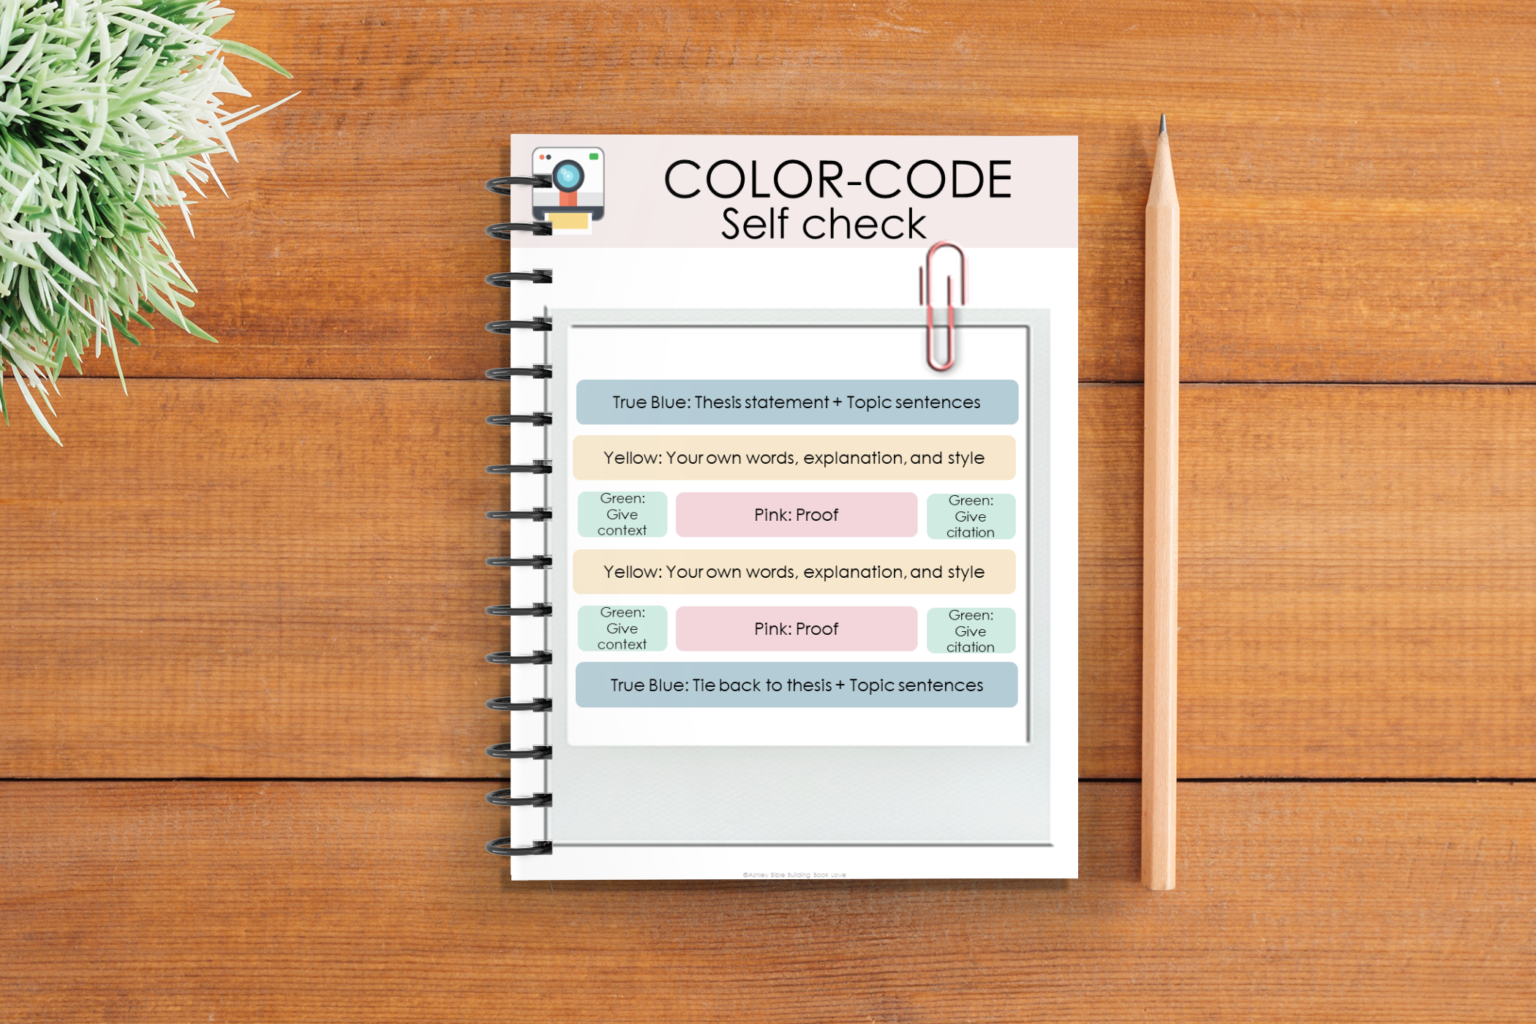 COLOR-CODE
Self check
True Blue: Thesis statement + Topic sentences
Yellow: Your own words, explanation, and style
Green:
Give
context
Pink: Proof
Green:
Give
citation
Yellow: Your own words, explanation, and style
Green:
Give
context
Pink: Proof
Green:
Give
citation
True Blue: Tie back to thesis + Topic sentences
©Ashley Bible Building Book Love